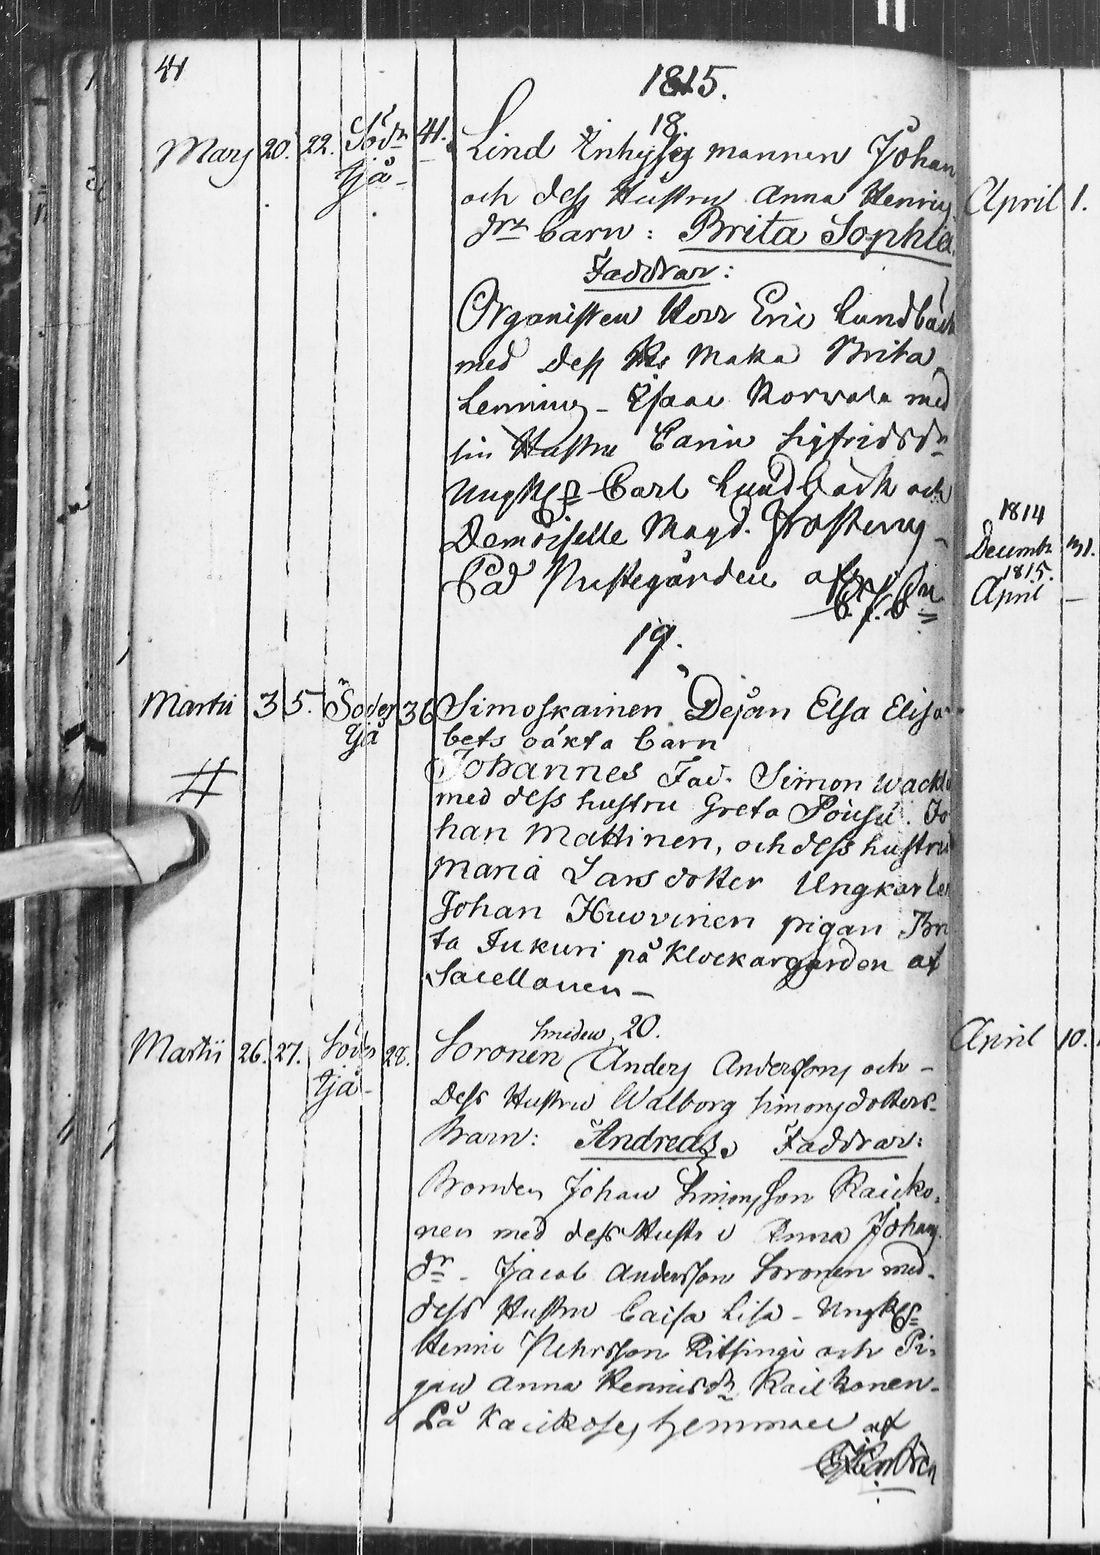 41
1815.
18
Marş 20. 22. Södr 41. Lind Enhysig mannen Johan
tjä- och dess Hustru Anna Henriç
drs barn: Brita Sophia.
Faddrar:
Organisten Herr Eric Lundbäck
med dess Maka Brita
Lenning - Isaac Korvala med
sin Hustru Carin Sigfridsdr
Ungk Carl Lundbäck och
Demoiselle Magd. Frosterus -
På Prestegården af
19.
Martii 3 5. Söder 36 Simoskainen Dejan Elsa Elisa
tjä bets oäkta barn
# Johannes Fad. Simon Wackl
med dess hustru Greta Pousu. Jo
han Mattinen, och dess hustru
Maria Larsdotter Ungkarlen
Johan Huovinen pigan Bri
ta Jukuri på Klockargården af
Sacellanen -
smeden 20.
Martii 26. 27. Söder 28. Soronen Anders Anderssons och -
tjä- Dess Hustru Walborg Simonsdotters-
Barn: Andreas, Faddrar:
Bonden Johan Simonsson Raicko-
nen med dess Hustru Anna Johans
dr - Jacob Andersson Soronen med-
dess Hustru Caisa Lisa - Ungk
Henric Pehrsson Kitsingi och Pi-
gan Anna Henricsdr Raickonen-
På Raickoses hemman af
April 1.
1814
Decembr 31.
1815.
April -
April 10.